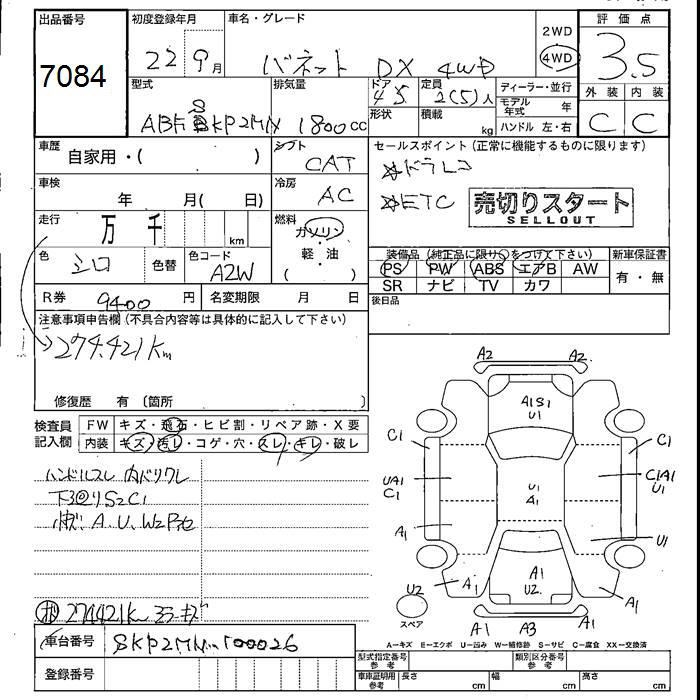 出品番号
7084
初度登録年月
22 9月
車名・グレード
バネット DX 4WD
2WD
4WD
評価点
3.5
外装 内装
C C
型式
ABF SKP2MN
排気量
1800cc
ドア
45
形状
定員
2(5)人
積載
kg
ディーラー・並行
モデル年式 年
ハンドル 左・右
車歴
自家用・( )
シフト
CAT
車検
年 月( 日)
冷房
AC
走行
万 千
km
燃料
ガソリン
・
軽・油
( )
色
シロ
色替
色コード
A2W
R券
9400 円
名変期限 月 日
セールスポイント(正常に機能するものに限ります)
☆ドラレコ
☆ETC
売切りスタート
SELLOUT
装備品(純正品に限り○をつけて下さい)
新車保証書
PS PW ABS エアB AW
SR ナビ TV カワ
有・無
後日品
注意事項申告欄(不具合内容等は具体的に記入して下さい)
274.421Km
修復歴 有(箇所 )
検査員
記入欄
FW キズ・飛石・ヒビ割・リペア跡・X要
内装 キズ・汚レ・コゲ・穴・スレ・キレ・破レ
ハンドルスレ 内バリワレ
下廻りS2C1
A.U.W2
274421Km
車台番号
SKP2MN-100026
登録番号
A2 A2
A1S1
U1
C1 C1
UA1
C1
U1
A1
C1A1
U1
A1 U1
U2 A1 A1
U2 A1
スペア
A1 A3 A1
A−キズ E−エクボ U−凹み W−補修跡 S−サビ C−腐食 XX−交換済
型式指定番号
参考
類別区分番号
参考
車庫証明用
参考
長さ cm 幅 cm 高さ cm